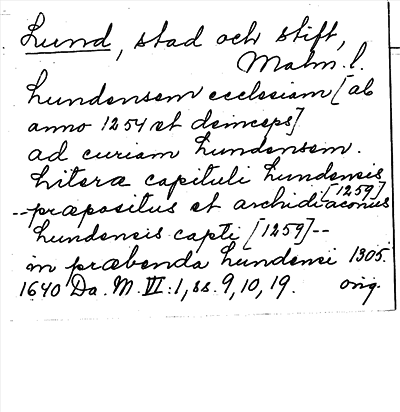 Lund, stad och stift,
Malm. l.
Lundensem ecclesiam [ab
anno 1254 et deinceps]
ad curiam Lundensem.
Litera capituli Lundensis
[1259]
--præpositus et archidiaconus
Lundensis capti [1259]--
in præbenda Lundensi 1305.
1640 Da. M. VI:1, ss. 9, 10, 19. orig.